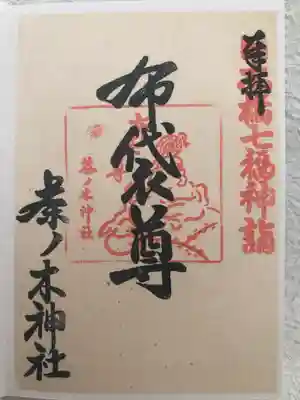 奉拝
橋七福神詣
布袋尊
茶ノ木神社
茶ノ木神社